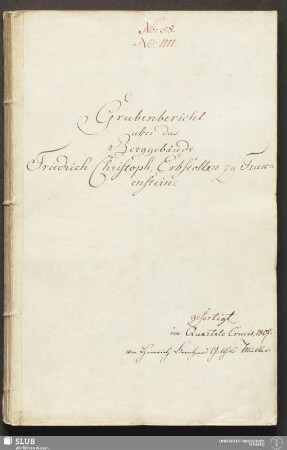 No: 58.
No: 1111.
Grubenbericht
über das
Berggebäude
Friedrich Christoph, Erbstolln zu Frau=
enstein.
gefertigt
im Quartale Crucis, 1807.
von Heinrich
SLUB
Wir führen Wissen.